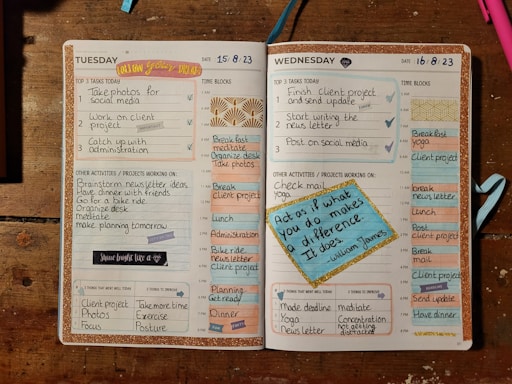 TUESDAY
FOLLOW your DREAMS
DATE 15/8/23
TOP 3 TASKS TODAY
1 Take photos for
social media
2 Work on client
project
3 Catch up with
administration
OTHER ACTIVITIES / PROJECTS WORKING ON:
Brainstorm newsletter ideas
Have dinner with friends
Go for a bike ride
Organize desk
meditate
make planning tomorrow
Shine bright like a
3 THINGS THAT WENT WELL TODAY
Client project
Photos
Focus
3 THINGS TO IMPROVE
Take more time
Exercise
Posture
TIME BLOCKS
Breakfast
meditate
Organize desk
Take photos
Break
Client project
Lunch
Administration
Bike ride
newsletter
Client project
Planning
Get ready
Dinner
WEDNESDAY
DATE 16/8/23
TOP 3 TASKS TODAY
1 Finish client project
and send update
2 Start writing the
newsletter
3 Post on social media
OTHER ACTIVITIES / PROJECTS WORKING ON:
Check mail
yoga
Act as if what
you do makes
a difference.
It does.
-William James
3 THINGS THAT WENT WELL TODAY
Made deadline
Yoga
Newsletter
3 THINGS TO IMPROVE
meditate
Concentration
not getting
distracted
TIME BLOCKS
Breakfast
yoga
Client project
break
newsletter
Lunch
Post
Client project
Break
mail
Client project
Send update
Have dinner